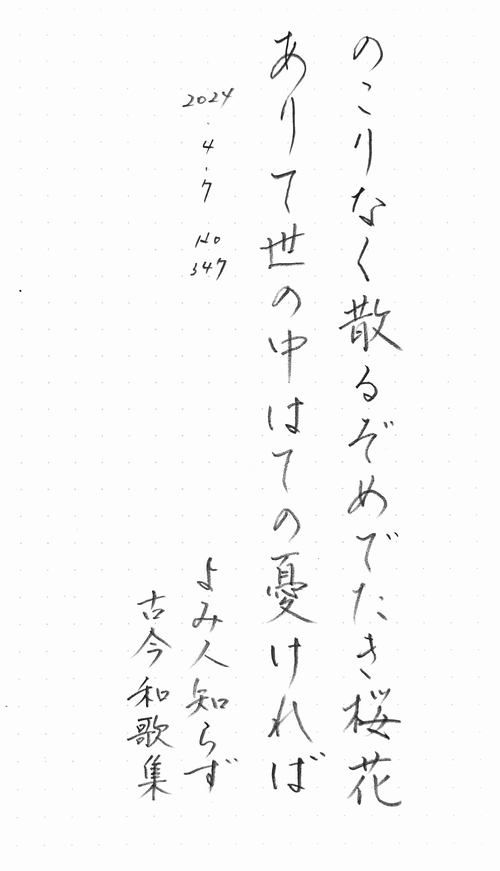 のこりなく散るぞめでたき桜花
ありて世の中はての憂ければ
2024.4.7 No347
よみ人知らず
古今和歌集